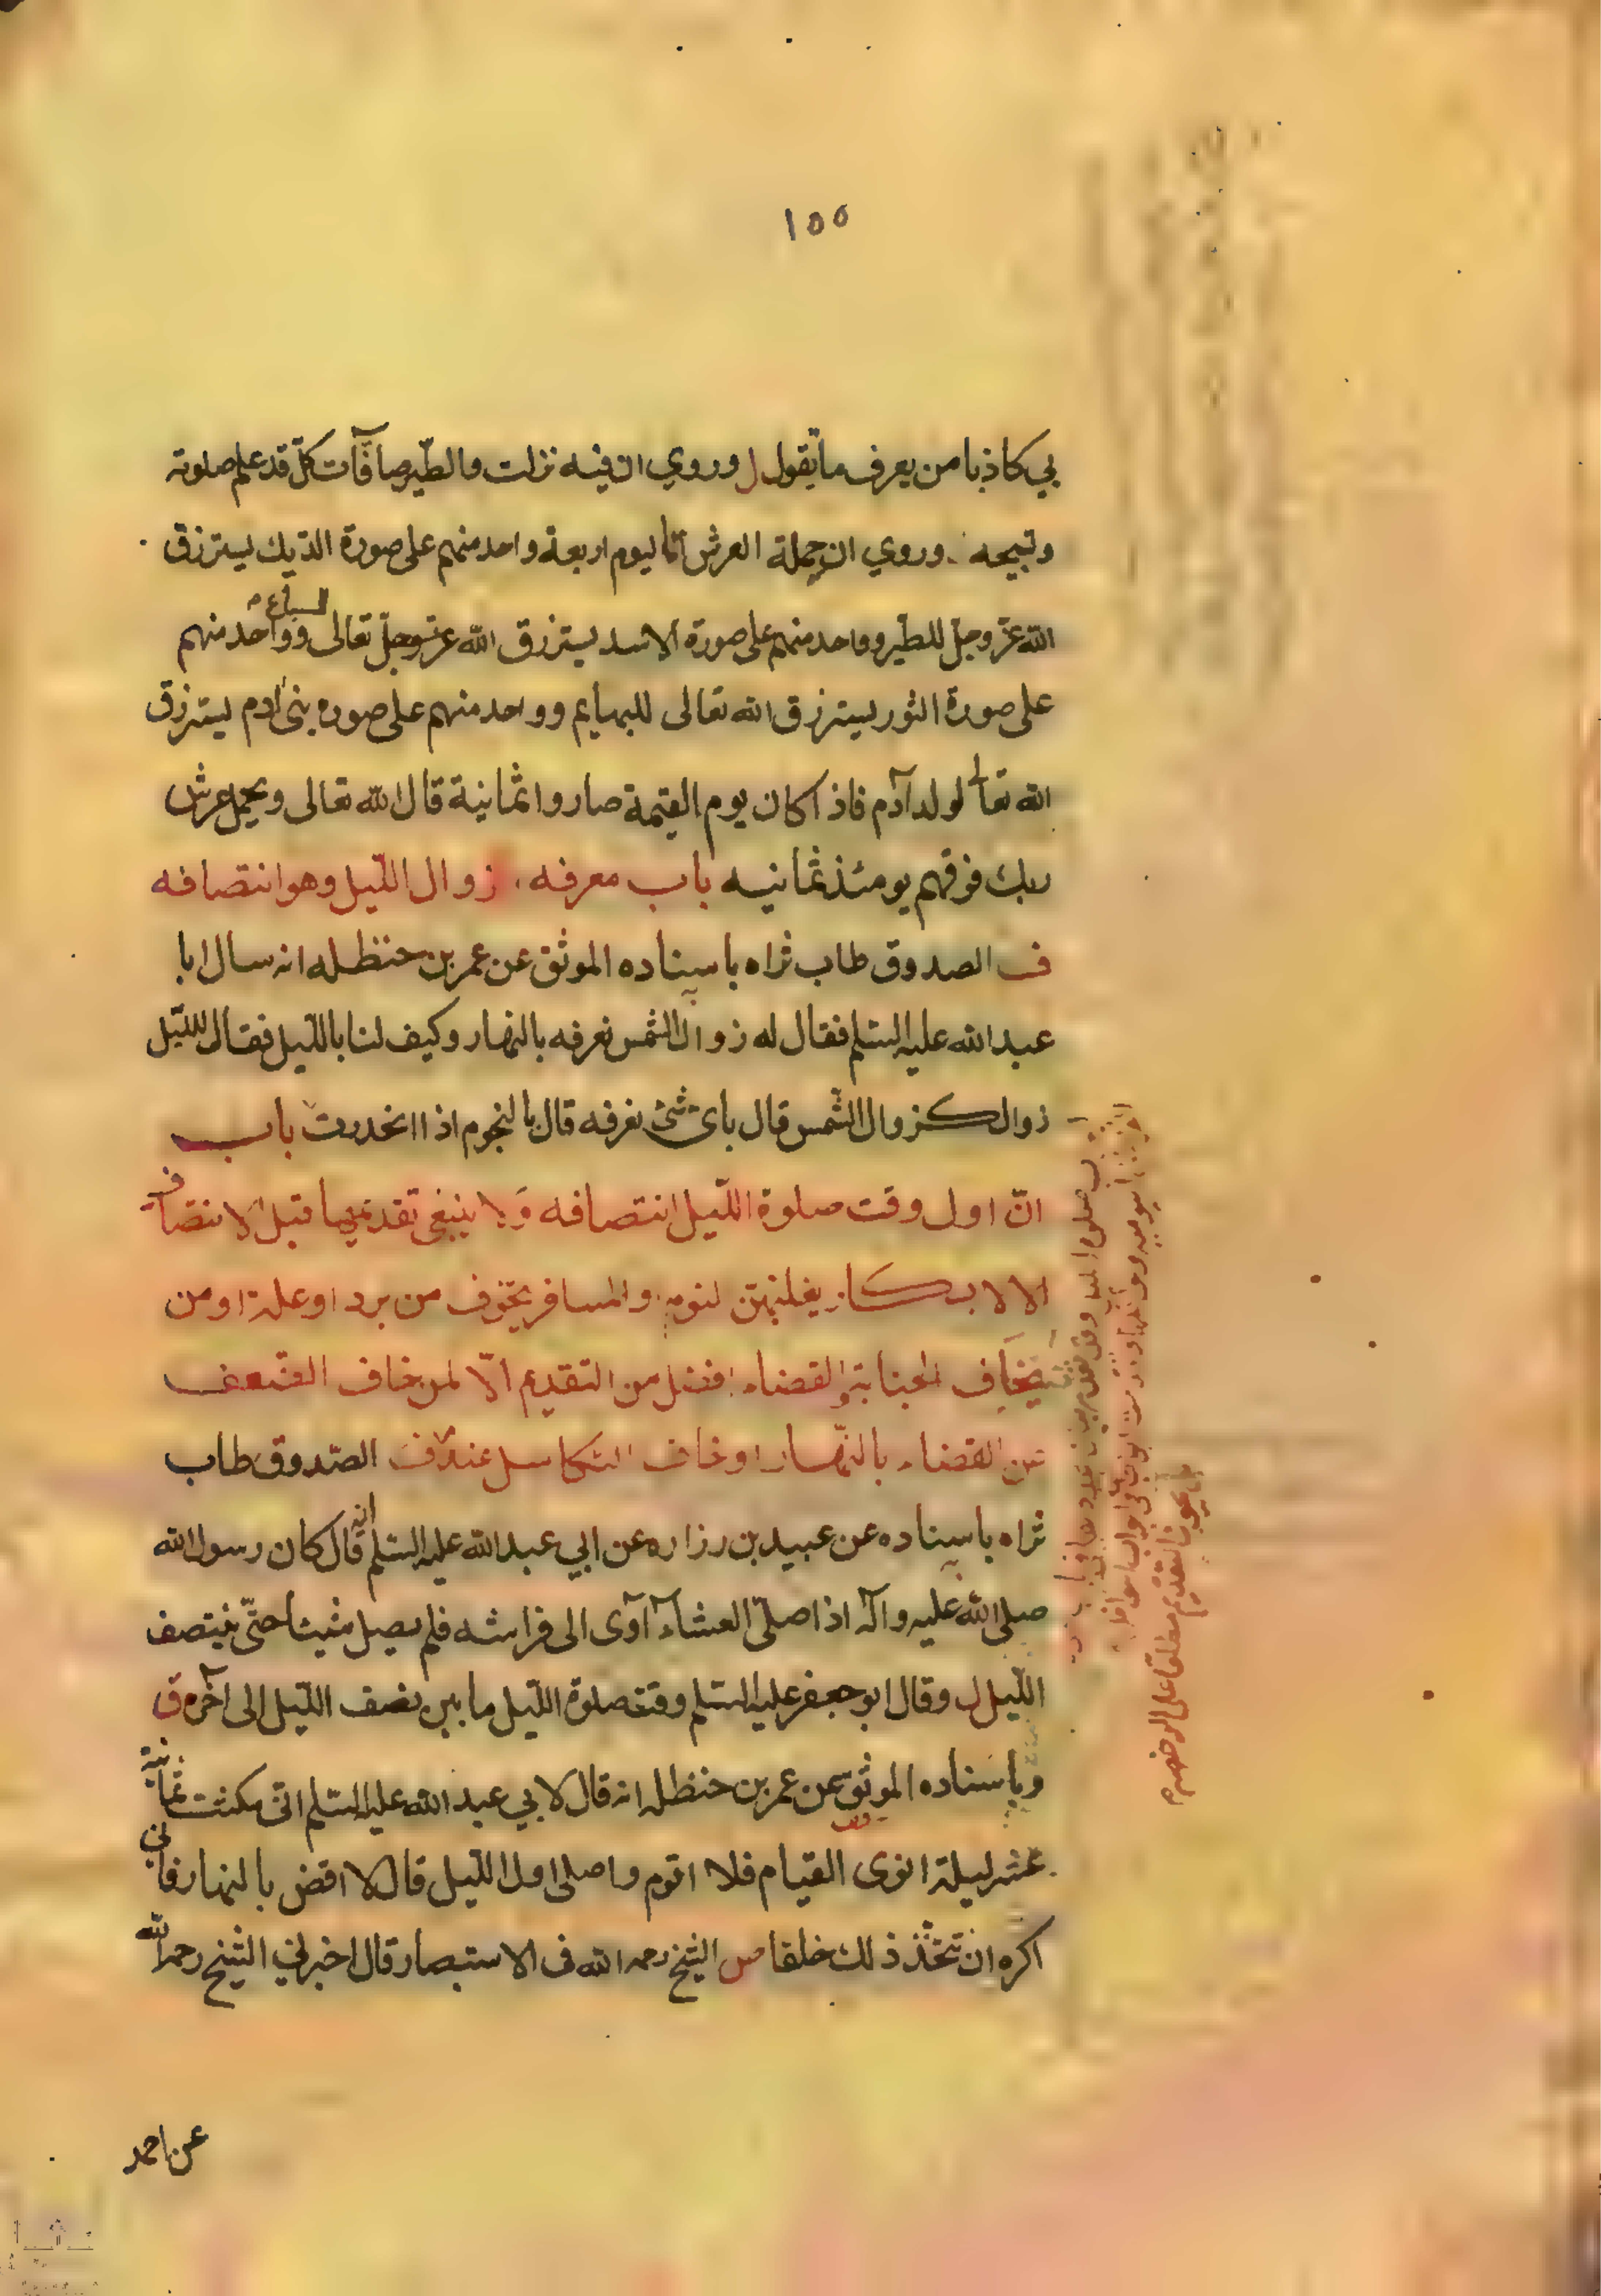 ١٥٥
بي كاذبا من يعرف ما تقول ل وروي ان فيه نزلت والطّير صافّآت كلّ قد علم صلوته
وتسبيحه وروي ان حملة العرش اليوم اربعة واحد منهم على صورة الديك يسترزق
الله عزّ وجلّ للطير وواحد منهم على صورة الاسد يسترزق الله عز وجلّ تعالى للسباع وواحد منهم
على صورة الثور يسترزق الله تعالى للبهايم وواحد منهم على صوره بنى ادم يسترزق
الله تعالى لولد آدم فاذا كان يوم القيمة صاروا ثمانية قال الله تعالى ويحمل عرش
ربك فوقهم يومئذ ثمانيه باب معرفه زوال اللّيل وهو انتصافه
ف الصدوق طاب ثراه باسناده الموثق عن عمر بن حنظله انه سال ابا
عبد الله عليه السّلم فقال له زوال الشمس نعرفه بالنهار وكيف لنا بالليل فقال للّيل
زوال كزوال الشّمس قال باى شئ نعرفه قال بالنجوم اذا انحدرت باب
انّ اول وقت صلوة اللّيل انتصافه ولا ينبغى تقديمها قبل الانتصاف
الا لابكار يغلبهن لنوم والمسافر يتخوف من برد او علة او من
يخاف الجنابة والقضاء افضل من التقديم الّا لمن يخاف الضعف
عن القضاء بالنّهار او خاف التكاسل عنه ف الصّدوق طاب
ثراه باسناده عن عبيد بن زراره عن ابي عبد الله عليه السّلم انه قال كان رسول الله
صلى الله عليه وآله اذا صلّى العشاء آوى الى فراشه فلم يصل شيئا حتّى ينتصف
اللّيل ل وقال ابو جعفر عليه السّلم وقت صلوة اللّيل ما بين نصف اللّيل الى آخره ق
وباسناده الموثق عن عمر بن حنظله انه قال لابي عبد الله عليه السّلم انى مكثت ثمانية
عشر ليلة انوى القيام فلا اقوم واصلى اول اللّيل قال لا اقض بالنهار فانى
اكره ان تتخذ ذلك خلقا ص الشيخ رحمه الله ف الاستبصار قال اخبرني الشيخ رحمه الله
عن احمد